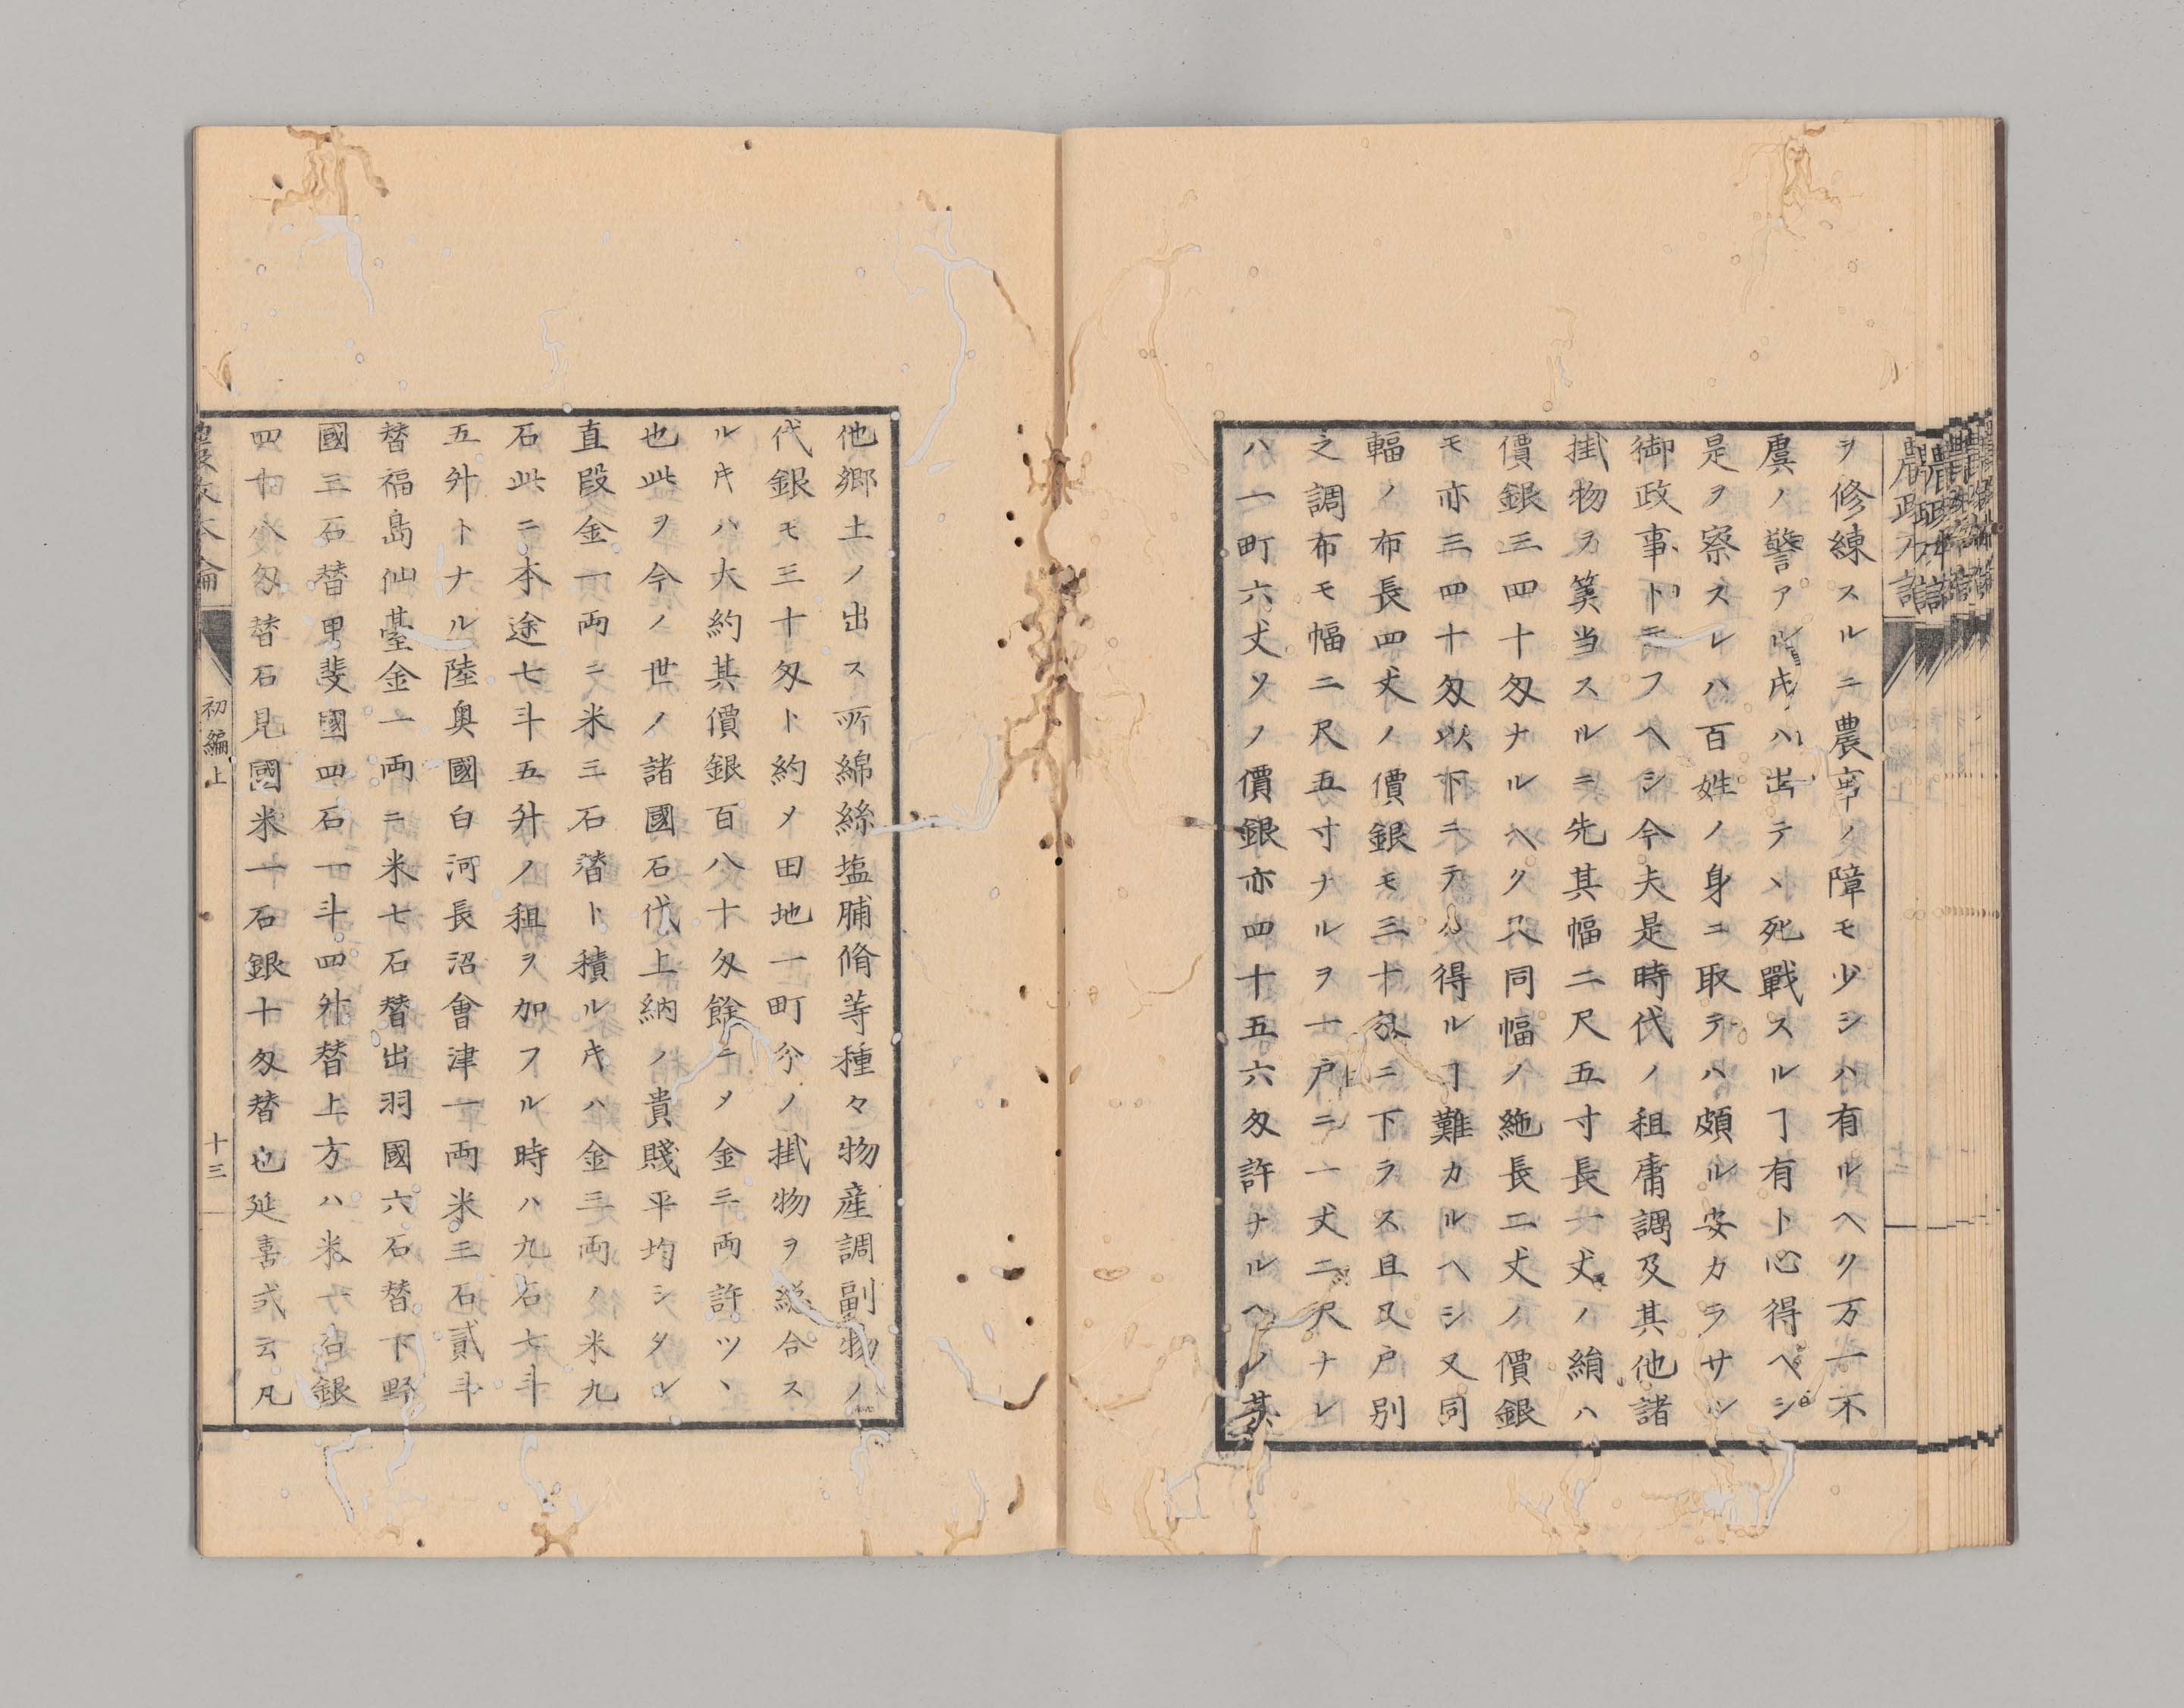 ヲ修練スルニ農事ノ障モ少シハ有ルヘク万一不
虞ノ警アル𪜈ハ出テヽ死戰スルヿ有ト心得ヘシ
是ヲ察スレハ百姓ノ身ニ取テハ頗ル安カラサル
御政事ト云フヘシ今夫是時代ノ租庸調及其他諸
掛物ヲ算当スルニ先其幅二尺五寸長一丈ノ絹ハ
價銀三四十匁ナルヘク又同幅ノ絁長二丈ノ價銀
モ亦三四十匁以下ニテハ得ルヿ難カルヘシ又同
輻ノ布長四丈ノ價銀モ三十匁ニ下ラス且又戸別
之調布モ幅二尺五寸ナルヲ一戸ニ一丈二尺ナレ
ハ一町六丈ツノ價銀亦四十五六匁許ナルヘノ其
他郷土ノ出ス所綿絲塩脯脩等種々物産調副物ノ
代銀モ三十匁ト約メ田地一町分ノ掛物ヲ総合ス
ルキハ大約其價銀百八十匁餘ニメ金三両許ツヽ
也此ヲ今ノ世ノ諸國石代上納ノ貴賤平均シタル
直段金一両ニ米三石替ト積ルキハ金三両ノ米九
石此ニ本途七斗五升ノ租ヲ加フル時ハ九石七斗
五升トナル陸奥國白河長沼會津一両米三石貳斗
替福島仙臺金一両ニ米七石替出羽國六石替下野
國三石替甲斐國四石一斗四升替上方ハ米一石銀
四十八匁替石見國米一石銀十匁替也延喜式云凡
農政本論
初編上
十三